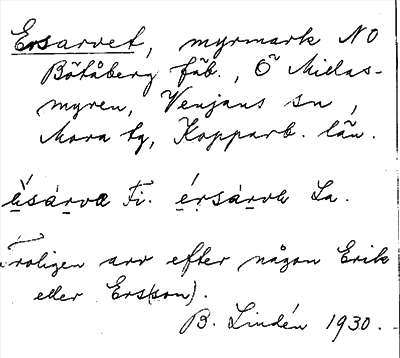 Ersarvet, myrmark NO
Bötåberg fäb., Ö Mielas-
myren, Venjans sn,
Mora tg, Kopparb. län.
ä̀sárva Fi. érsárva La.
Troligen arv efter någon Erik
eller Ers(son).
B. Lindén 1930.